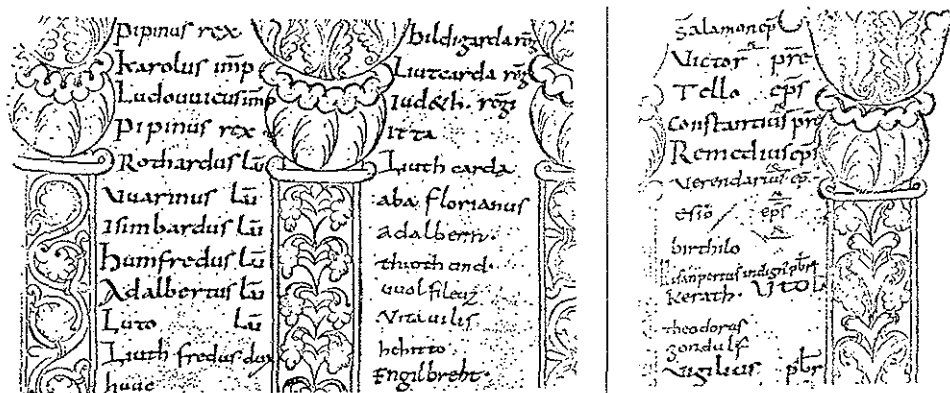 Pipinus rex
karolus im̄p
Ludouuicus imp
Pipinus rex
Rothardus laū
Vuarinus laū
Isimbardus laū
humfredus laū
Adalbertus laū
Luto laū
Liuth fredus dux
hildigarda
Liutcarda
Iud&h. regi
itta
Liuth carda
aba florianus
adalbern
Vitauilis
hchitto
Engilbreht.
Salamon ep̄s
Victor p̄re
Tello ep̄s
Constantius p̄re
Remedius ep̄s
Verendarius ep̄
esio ep̄s
birthilo
Kerath. Vitol
theodorus
gondulf
Vigilius pb̄r